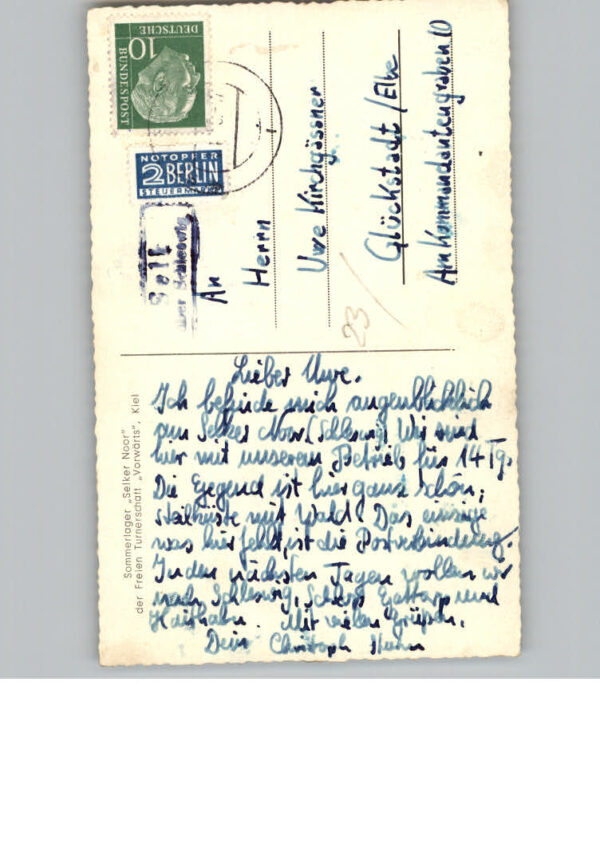 10
DEUTSCHE
BUNDESPOST
NOTOPFER
2 BERLIN
STEUERMARKE
Selk
über Schleswig
An
Herrn
Uwe Kirchgässner
Glückstadt/Elbe
Am Kommandantengraben 10
23/
Lieber Uwe.
Ich befinde mich augenblicklich
am Selker Noor (Schleswig). Wir sind
hier mit unserem Betrieb für 14 Tg.
Die Gegend ist hier ganz schön;
Steilküste mit Wald. Das einzige
was hier fehlt, ist die Postverbindung.
In den nächsten Tagen wollen wir
nach Schleswig, Schloss Gottorp und
Haithabu. Mit vielen Grüßen,
Dein Christoph
Sommerlager „Selker Noor"
der Freien Turnerschaft „Vorwärts", Kiel